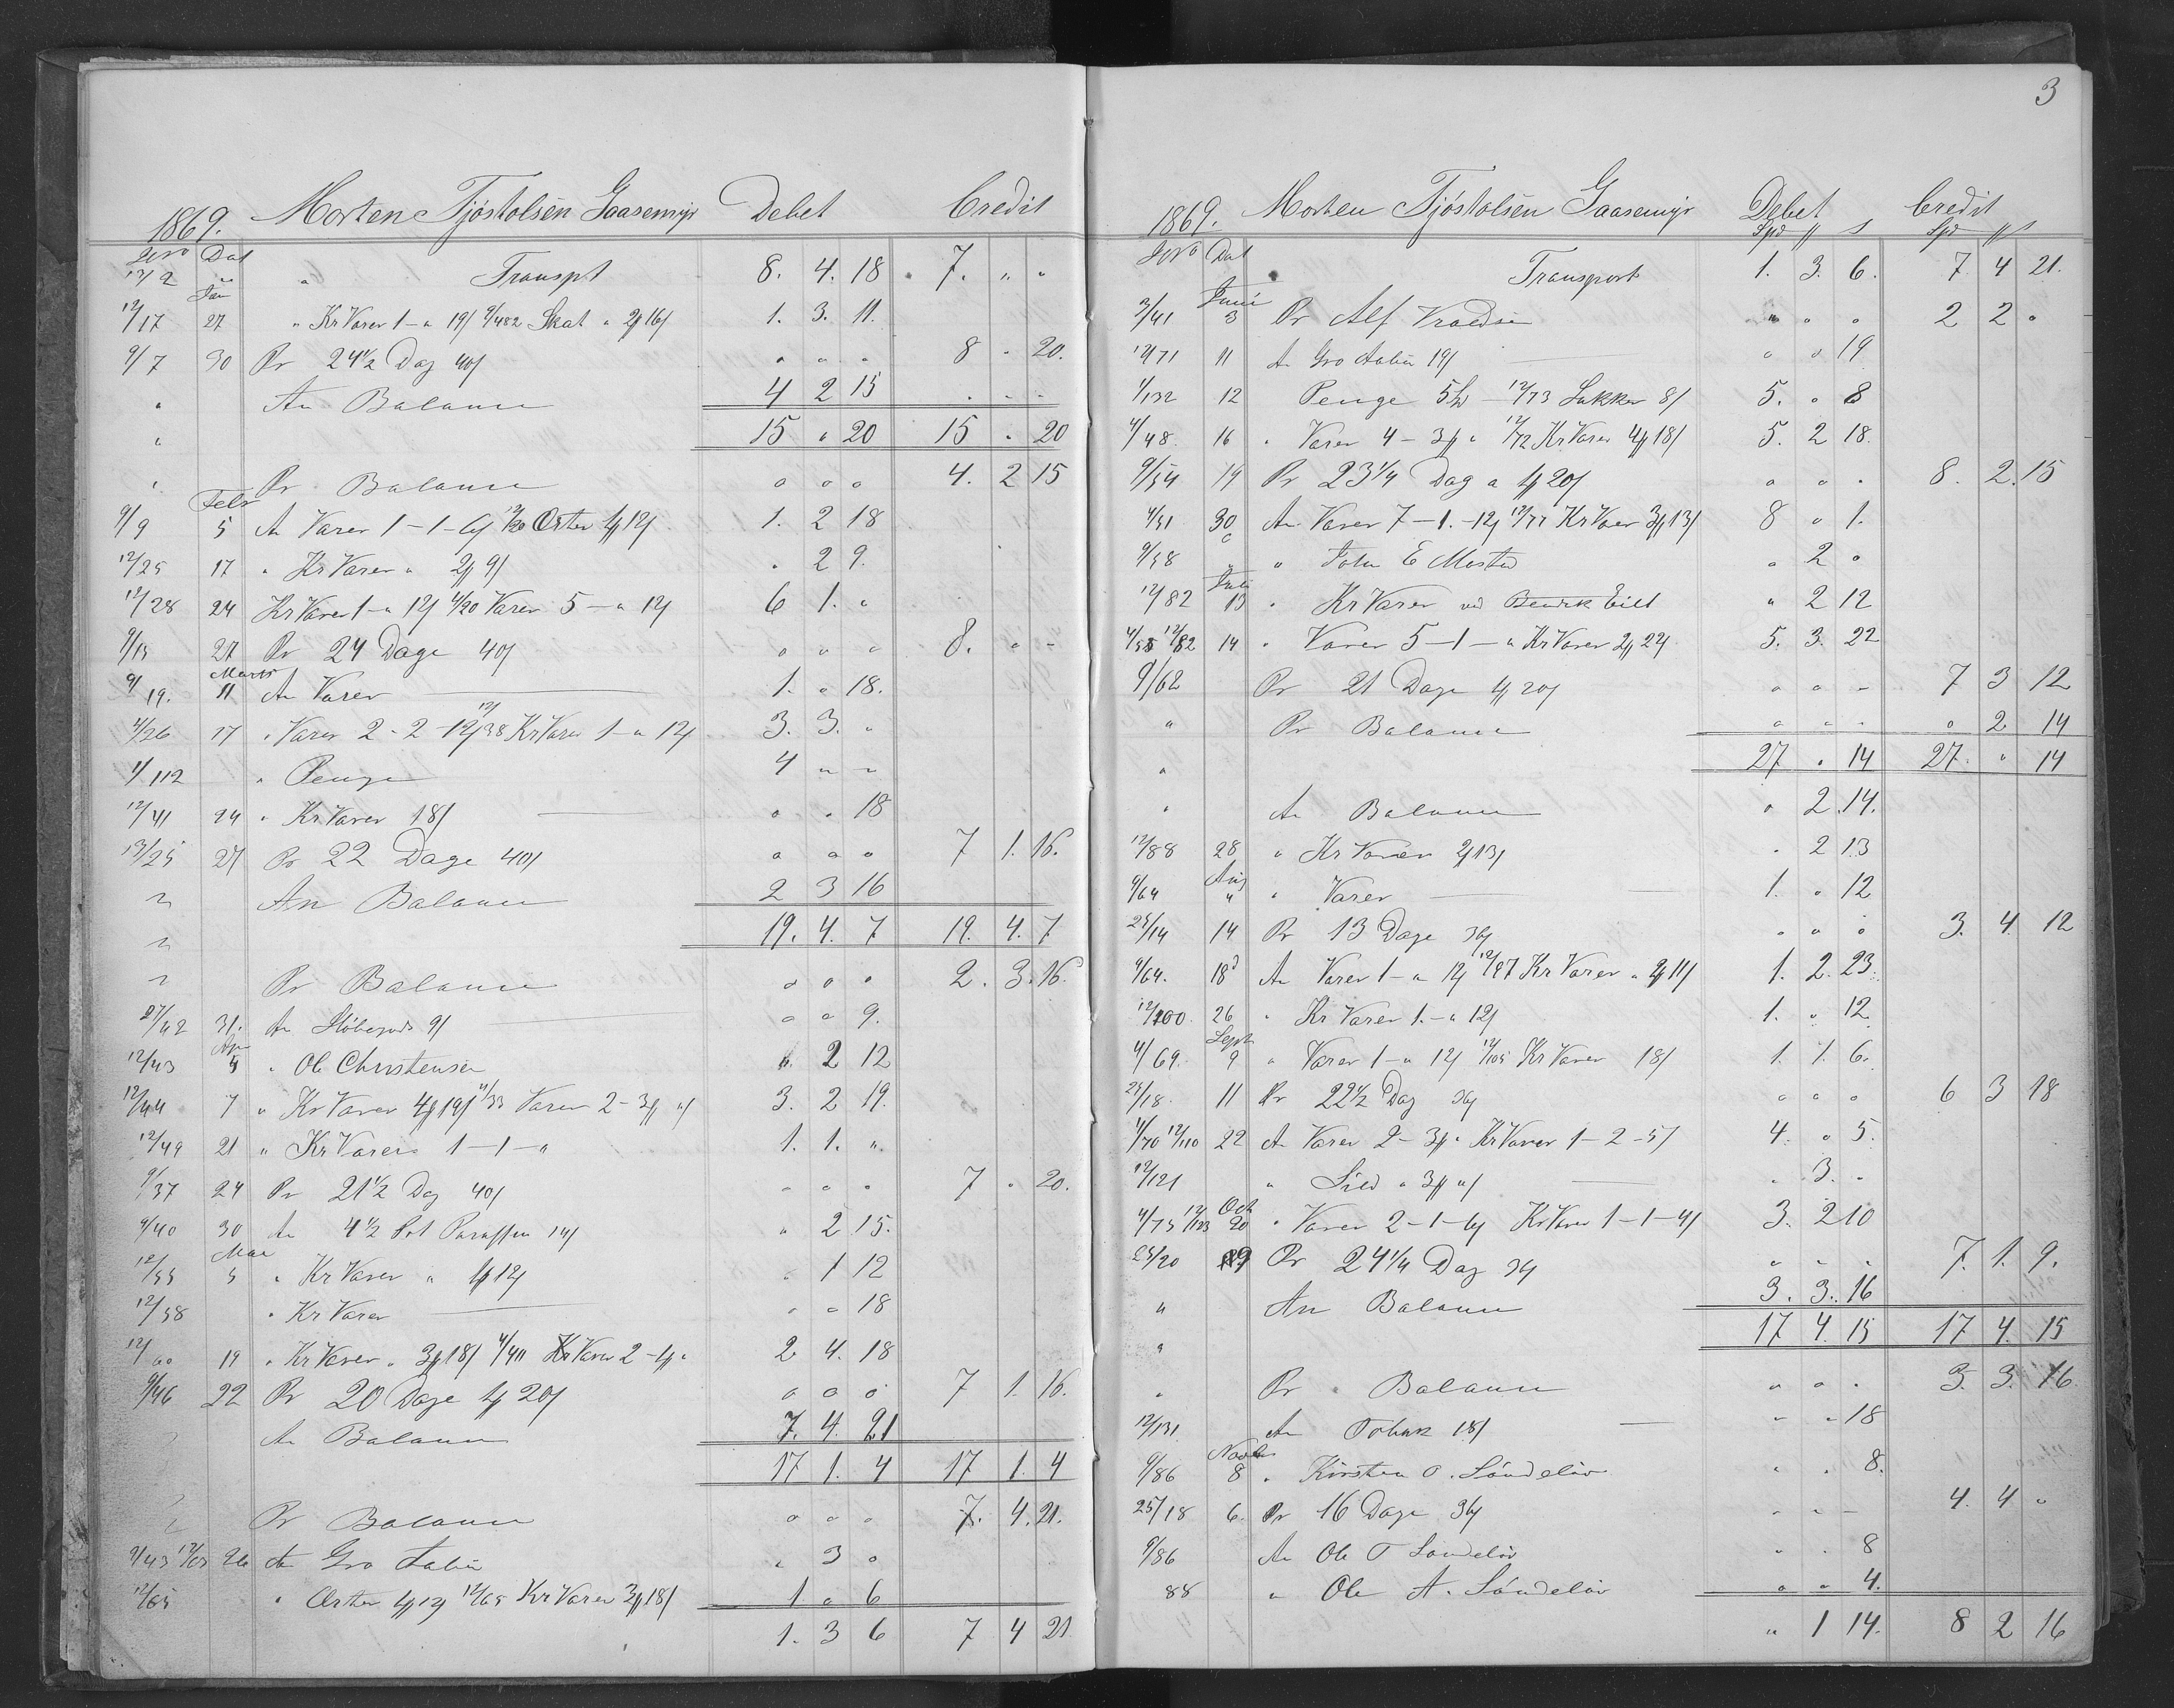 1869. Morten Tjøstolsen Gaasemyr Debet Credit
Dat
12/2 " " Transpt 8. 4. 18 7. " "
Jan
12/17 27 " Kr Varer 1 - " 19/ 9/482 Skat " 2 16/ 1. 3. 11.
9/7 30 Pr 24½ Dag 40/ " " " 8 " 20.
" An Balance 4 2 15 " " "
" 15 " 20 15 " 20
" Pr Balance " " " 4. 2 15
Febr
9/9 5 An Varer 1-1-6/ 12/20 Erter 1 12/ 1. 2 18
12/25 17 " Kr Varer " 2 9/ " 2 9.
12/28 24 Kr Varer 1 - " 12/ 4/20 Varer 5 - " 12/ 6 1. "
9/15 27 Pr 24 Dage 40/ " " " 8. " "
Marts
9/19. 11 An Varer 1. " 18.
4/26 17 " Varer 2-2-12/ 12/38 Kr Varer 1 - " 12/ 3. 3. "
1/112 " Penge 4 " "
12/41 24 " Kr Varer 18/ " " 18
13/25 27 Pr 22 Dage 40/ " " " 7 1. 16.
" An Balance 2 3 16
" 19. 4. 7 19. 4. 7
" Pr Balance " " " 2. 3. 16.
27/42 31. An Støbegods 9/ " " 9.
Apr
12/43 5 " Ole Christensen " 2 12
12/44 7 " Kr Varer 4 19/ 4/33 Varer 2 - 3 "/ 3. 2 19.
12/49 21 " Kr Varer 1-1-" 1. 1. "
9/37 24 Pr 21½ Dag 40/ " " " 7 " 20.
9/40 30 An 4½ Pot Paraffin 14/ " 2 15.
Mai
12/55 5 " Kr Varer " 1 12/ " 1 12
12/58 " Kr Varer " " 18
12/60 19 " Kr Varer " 3 18/ 4/40 Varer 2-4 " 2. 4. 18
9/46 22 Pr 20 Dage 1 20/ " " " 7 1. 16.
An Balance 7. 4. 21
17 1. 4 17 1. 4
Pr Balance " " " 7. 4. 21.
9/43 12/63 26 An Gro Aabø " 3 "
12/65 " Erter 1 12/ 12/65 Kr Varer 3 18/ 1 " 6
1. 3 6 7 4 21
3
1869. Morten Tjøstolsen Gaasemyr Debet Credit
Dat Spd s Spd s
Transport 1. 3. 6. 7. 4 21.
Juni
3/41 3 Pr Alf " " " 2 2 "
12/71 11 An Gro Aabø 19/ " " 19
1/132 12 Penge 5 - 12/73 Sukker 8/ 5. " 8
4/48 16 " Varer 4 - 3 " 12/72 Kr Varer 4 18/ 5. 2 18.
9/54 19 Pr 23¼ Dag a 1 20/ " " " 8. 2. 15
4/51 30 An Varer 7-1-12/ 12/77 Kr Varer 3 13/ 8 " 1.
9/58 " " John E " 2 "
Juli
12/82 13 " Kr Varer ved Eilt " 2 12
4/55 12/82 14 " Varer 5-1-" Kr Varer 2 22/ 5. 3. 22
9/62 Pr 21 Dage 1 20/ " " " 7 3 12
" Pr Balance " " " " 2 14
" 27 " 14 27. " 14
" An Balance " 2 14.
12/88 28 " Kr Varer 2 13/ " 2 13
Aug
4/64 " " Varer 1. " 12
25/14 14 Pr 13 Dage 36/ " " " 3. 4. 12
4/64. 18 An Varer 1 - " 12/ 12/97 Kr Varer " 2 11/ 1. 2. 23.
12/100. 26 " Kr Varer 1. - " 12/ 1. " 12
Sept
4/69. 9 " Varer 1 - " 12/ 12/105 Kr Varer 18/ 1. 1. 6.
25/18. 11 Pr 22½ Dag 36/ " " " 6 3 18
4/70 12/110 22 An Varer 2-3 " Kr Varer 1-2-5/ 4. " 5.
12/121 " Sild " 3 "/ " 3. "
Oct
4/75 12/123 20 " Varer 2-1-6/ Kr Varer 1-1-4/ 3. 2 10
25/20 29 Pr 24¼ Dag 36/ " " " 7. 1. 9.
" An Balance 3. 3. 16
" 17 4. 15 17 4. 15
" Pr Balance " " " 3. 3. 16.
12/131 An Tobak 18/ " " 18
Novbr
9/86 8 " Kirsten O. Søndeløv " " 8.
25/18 6. Pr 16 Dage 36/ " " " 4. 4 "
9/86 An Ole T Søndeløv " " 8
88 " Ole A. Søndeløv " " 4.
" 1 14. 8 2 16